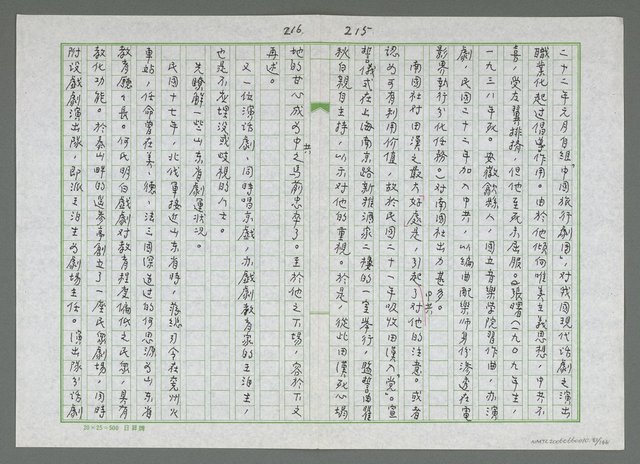 215
二十二年元月自組“中國旅行劇團”，對我國現代話劇之演出
職業化起過倡導作用。由於他傾向唯美主義思想，中共不
喜，受左翼排擠，但他至死不屈服。張曙（一九〇九年生，
一九三八年死。安徽歙縣人，國立音樂學院習作曲，亦演
劇，民國二十二年加入中共，以編曲配樂師身份滲透在電
影界執行分化任務。）對南國社出力甚多。
南國社對田漢之最大好處是，引起了中共對他的注意。或者
認為可有利用價值，故於民國二十一年吸收田漢入“黨”。宣
誓儀式在上海南京路新雅酒家二樓的一室舉行，監誓由瞿
秋白親自主持，以示對他的重視。於是，從此田漢死心塌
216
地的甘心成為中共之馬前忠卒了。至於他之下場，容於下文
再述。
又一位演話劇，同時唱京戲，亦戲劇教育家的王泊生，
也是不應埋沒或歧視的人士。
先瞭解一些山東省劇運狀況。
民國十七年，北伐軍接近山東省時，蔣總司令在兗州火
車站，任命曾在美、德、法三國深造過的何思源為山東省
教育廳廳長。何氏明白戲劇對教育程度偏低之民眾，具有
教化功能。於泰山畔的遙參亭創立了一座民眾劇場，同時
附設戲劇演出隊，即派王泊生為劇場主任。演出隊分話劇
20×25=500 日昇牌